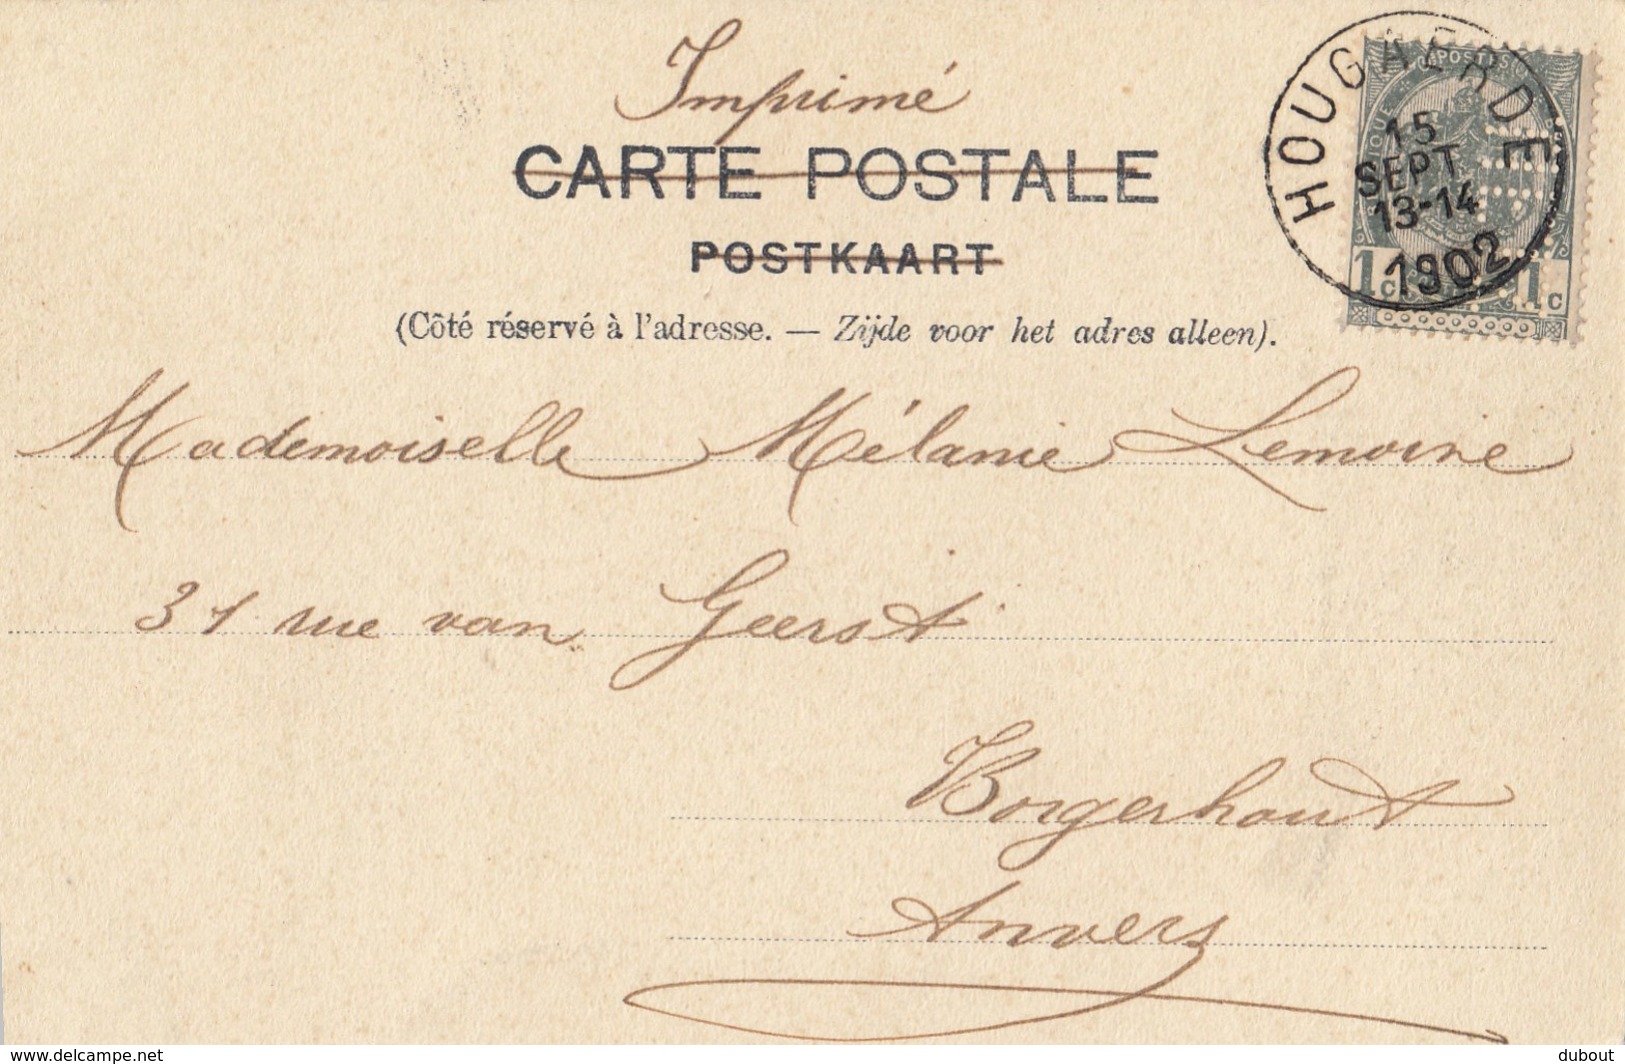 Imprimé
CARTE POSTALE
POSTKAART
(Côté réservé à l'adresse. — Zijde voor het adres alleen).
HOUGAERDE
15
SEPT
13-14
1902
POSTES
1c 1c
Mademoiselle Mélanie Lemoine
31 rue van Geerst
Borgerhout
Anvers
www.delcampe.net
dubout